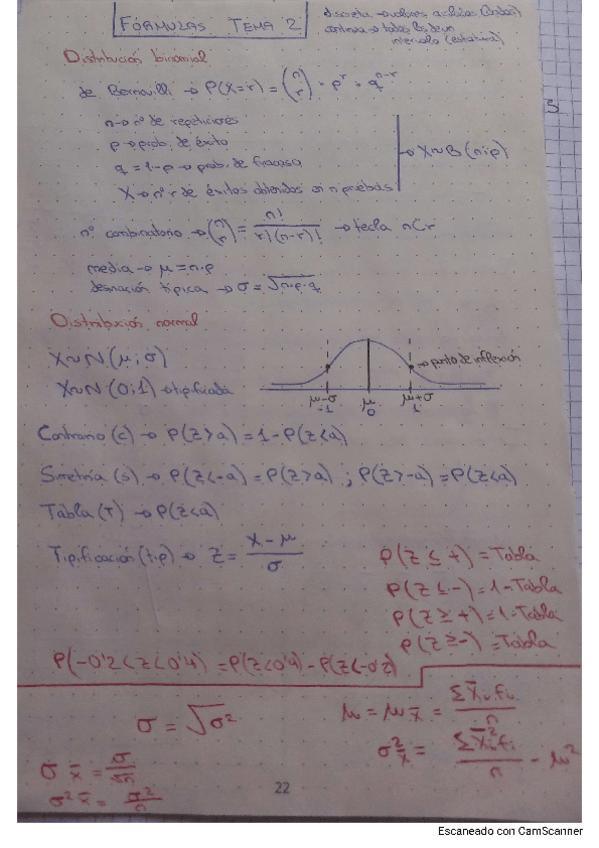 FÓRMULAS TEMA 2
discreta → valores aislados (dados)
continua → todos los de un
intervalo (estatura)
Distribución binomial
de Bernouilli → P(X=r) = (n r) · p^r · q^(n-r)
n → nº de repeticiones
p → prob. de éxito
q = 1-p → prob. de fracaso
X → nº r de éxitos obtenidos en n pruebas
→ X~B(n;p)
nº combinatorio → (n r) = n! / r!(n-r)! → tecla nCr
media → μ = n·p
desviación típica → σ = √n·p·q
Distribución normal
X~N(μ;σ)
X~N(0;1) → tipificada
→ punto de inflexión
μ-σ μ μ+σ
-1 0 1
Contrario (c) → P(Z>a) = 1-P(Z<a)
Simetría (s) → P(Z<-a) = P(Z>a) ; P(Z>-a) = P(Z<a)
Tabla (T) → P(Z<a)
Tipificación (tip) → Z = X-μ / σ
P(Z ≤ +) = Tabla
P(Z ≤ -) = 1-Tabla
P(Z ≥ +) = 1-Tabla
P(Z ≥ -) = Tabla
P(-0'2<Z<0'4) = P(Z<0'4) - P(Z<-0'2)
σ = √σ²
μ = μx̄ = Σx̄ᵢfᵢ / n
σ²x̄ = Σx̄ᵢ²fᵢ / n - μ²
σx̄ = σ/√n
σ²x̄ = σ²/n
22
Escaneado con CamScanner